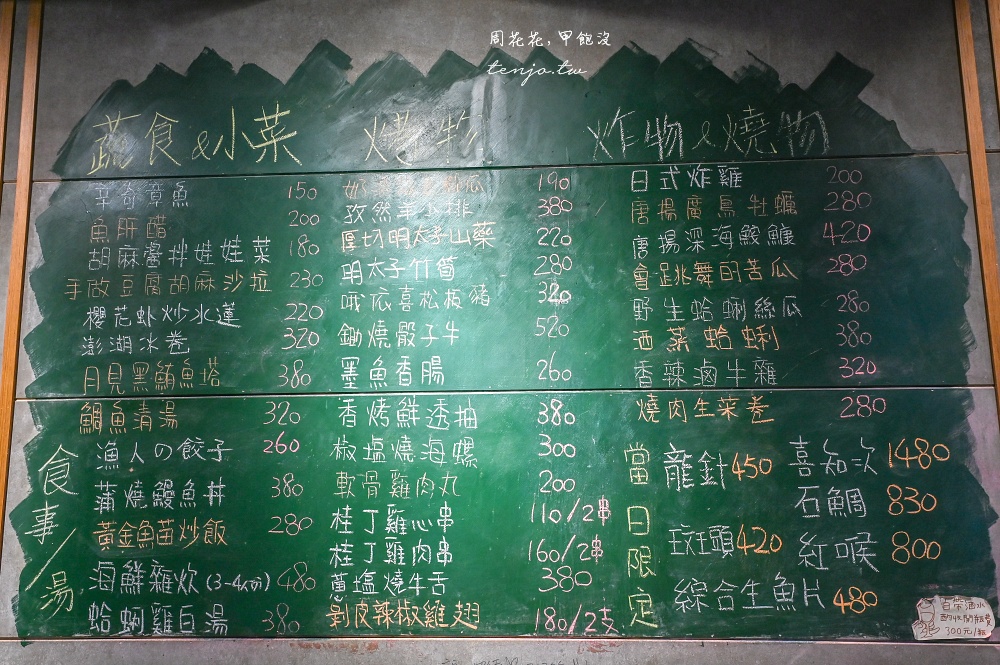 周花花,甲飽沒
tenjo.tw
蔬食&小菜
辛奇章魚 150
魚肝醋 200
胡麻醬拌娃娃菜 180
手做豆腐胡麻沙拉 230
櫻花虾炒水蓮 220
澎湖冰卷 320
月見黑鮪魚塔 380
食事/湯
鯛魚清湯 320
漁人の餃子 260
蒲燒鰻魚丼 380
黃金魚苗炒飯 280
海鮮雜炊(3-4人份) 480
蛤蜊雞白湯 380
烤物
190
孜然羊小排 380
厚切明太子山藥 220
明太子竹筍 280
哦伊喜松板豬 320
鋤燒骰子牛 520
墨魚香腸 260
香烤鮮透抽 380
椒塩燒海螺 300
軟骨雞肉丸 200
桂丁雞心串 110/2串
桂丁雞肉串 160/2串
蔥塩燒牛舌 380
剝皮辣椒雞翅 180/2支
炸物&燒物
日式炸雞 200
唐揚廣島牡蠣 280
唐揚深海鮟鱇 420
會跳舞的苦瓜 280
野生蛤蜊絲瓜 280
酒蒸蛤蜊 380
香辣滷牛雜 320
燒肉生菜卷 280
當日限定
龍針 450
喜知次 1480
石鯛 830
斑頭 420
紅喉 800
綜合生魚片 480
自帶酒水
酌收開瓶費
300元/瓶